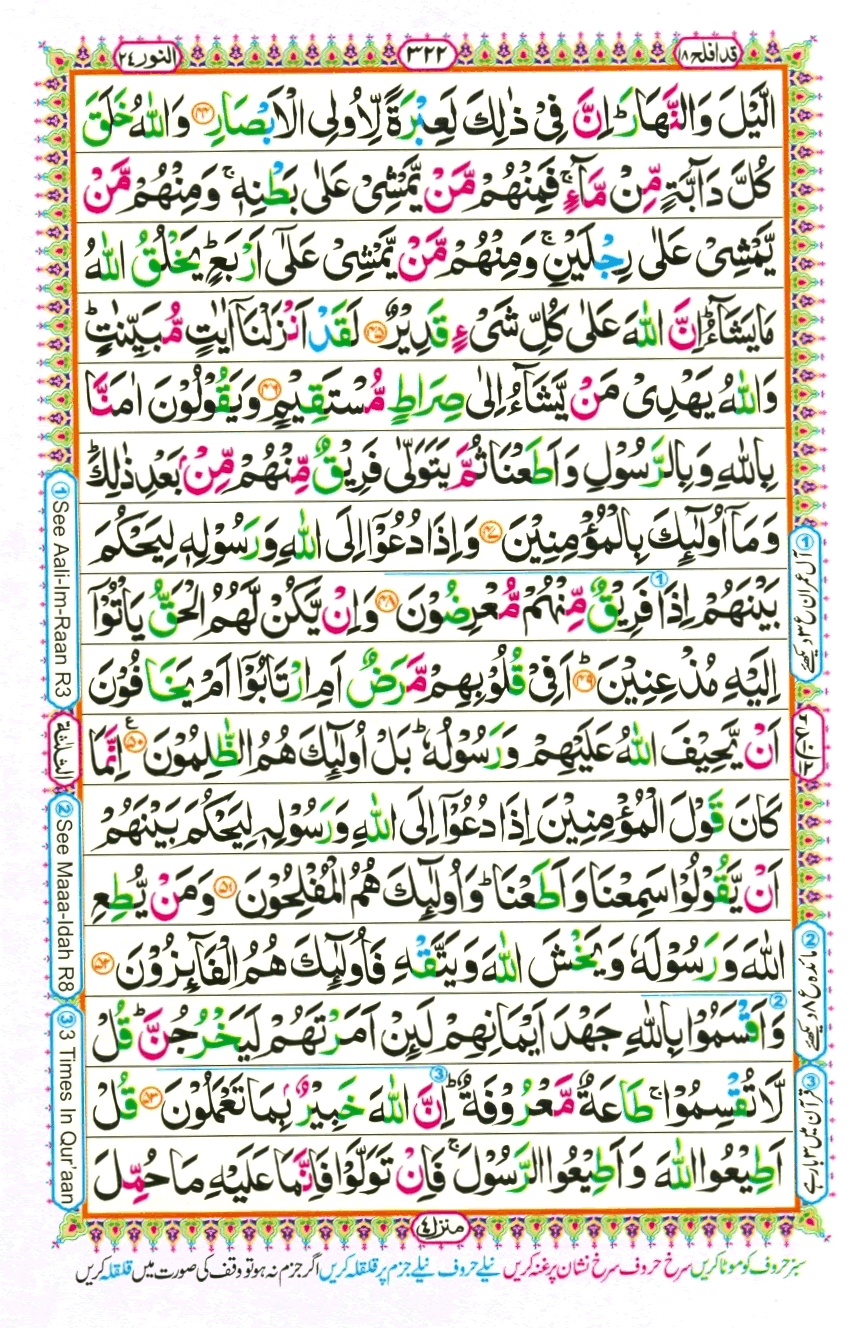 قد افلح ۱۸
۳۲۲
النور ۲۴
الَّیْلَ وَالنَّهَارَ ؕ اِنَّ فِیْ ذٰلِكَ لَعِبْرَةً لِّاُولِی الْاَبْصَارِ ۴۴ وَاللّٰهُ خَلَقَ
كُلَّ دَآبَّةٍ مِّنْ مَّآءٍ ۚ فَمِنْهُمْ مَّنْ یَّمْشِیْ عَلٰی بَطْنِهٖ ۚ وَمِنْهُمْ مَّنْ
یَّمْشِیْ عَلٰی رِجْلَیْنِ ۚ وَمِنْهُمْ مَّنْ یَّمْشِیْ عَلٰۤی اَرْبَعٍ ؕ یَخْلُقُ اللّٰهُ
مَا یَشَآءُ ؕ اِنَّ اللّٰهَ عَلٰی كُلِّ شَیْءٍ قَدِیْرٌ ۴۵ لَقَدْ اَنْزَلْنَاۤ اٰیٰتٍ مُّبَیِّنٰتٍ ؕ
وَاللّٰهُ یَهْدِیْ مَنْ یَّشَآءُ اِلٰی صِرَاطٍ مُّسْتَقِیْمٍ ۴۶ وَیَقُوْلُوْنَ اٰمَنَّا
بِاللّٰهِ وَبِالرَّسُوْلِ وَاَطَعْنَا ثُمَّ یَتَوَلّٰی فَرِیْقٌ مِّنْهُمْ مِّنْۢ بَعْدِ ذٰلِكَ ؕ
وَمَاۤ اُولٰٓئِكَ بِالْمُؤْمِنِیْنَ ۴۷ وَاِذَا دُعُوْۤا اِلَی اللّٰهِ وَرَسُوْلِهٖ لِیَحْكُمَ
بَیْنَهُمْ اِذَا فَرِیْقٌ مِّنْهُمْ مُّعْرِضُوْنَ ۴۸ وَاِنْ یَّكُنْ لَّهُمُ الْحَقُّ یَاْتُوْۤا
اِلَیْهِ مُذْعِنِیْنَ ؕ ۴۹ اَفِیْ قُلُوْبِهِمْ مَّرَضٌ اَمِ ارْتَابُوْۤا اَمْ یَخَافُوْنَ
اَنْ یَّحِیْفَ اللّٰهُ عَلَیْهِمْ وَرَسُوْلُهٗ ؕ بَلْ اُولٰٓئِكَ هُمُ الظّٰلِمُوْنَ ۵۰ ع اِنَّمَا
كَانَ قَوْلَ الْمُؤْمِنِیْنَ اِذَا دُعُوْۤا اِلَی اللّٰهِ وَرَسُوْلِهٖ لِیَحْكُمَ بَیْنَهُمْ
اَنْ یَّقُوْلُوْا سَمِعْنَا وَاَطَعْنَا ؕ وَاُولٰٓئِكَ هُمُ الْمُفْلِحُوْنَ ۵۱ وَمَنْ یُّطِعِ
اللّٰهَ وَرَسُوْلَهٗ وَیَخْشَ اللّٰهَ وَیَتَّقْهِ فَاُولٰٓئِكَ هُمُ الْفَآئِزُوْنَ ۵۲
وَاَقْسَمُوْا بِاللّٰهِ جَهْدَ اَیْمَانِهِمْ لَئِنْ اَمَرْتَهُمْ لَیَخْرُجُنَّ ؕ قُلْ
لَّا تُقْسِمُوْا ۚ طَاعَةٌ مَّعْرُوْفَةٌ ؕ اِنَّ اللّٰهَ خَبِیْرٌۢ بِمَا تَعْمَلُوْنَ ۵۳ قُلْ
اَطِیْعُوا اللّٰهَ وَاَطِیْعُوا الرَّسُوْلَ ۚ فَاِنْ تَوَلَّوْا فَاِنَّمَا عَلَیْهِ مَا حُمِّلَ
① آل عمران ع ۳ دیکھئے
② مائدہ ع ۸ دیکھئے
③ قرآن میں ۳ بار ہے
① See Aali-Im-Raan R3
الثلثة
② See Maaa-Idah R8
③ 3 Times In Qur'aan
منزل ۴
سبز حروف کو موٹا کریں سرخ حروف سرخ نشان پر غنہ کریں نیلے حروف نیلے جزم پر قلقلہ کریں اگر جزم نہ ہو تو وقف کی صورت میں قلقلہ کریں